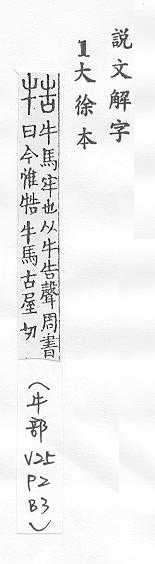 說文解字
1大徐本
牿
牛馬牢也从牛告聲周書
曰今惟牿牛馬古屋切
(牛部
V25
P2
B3)